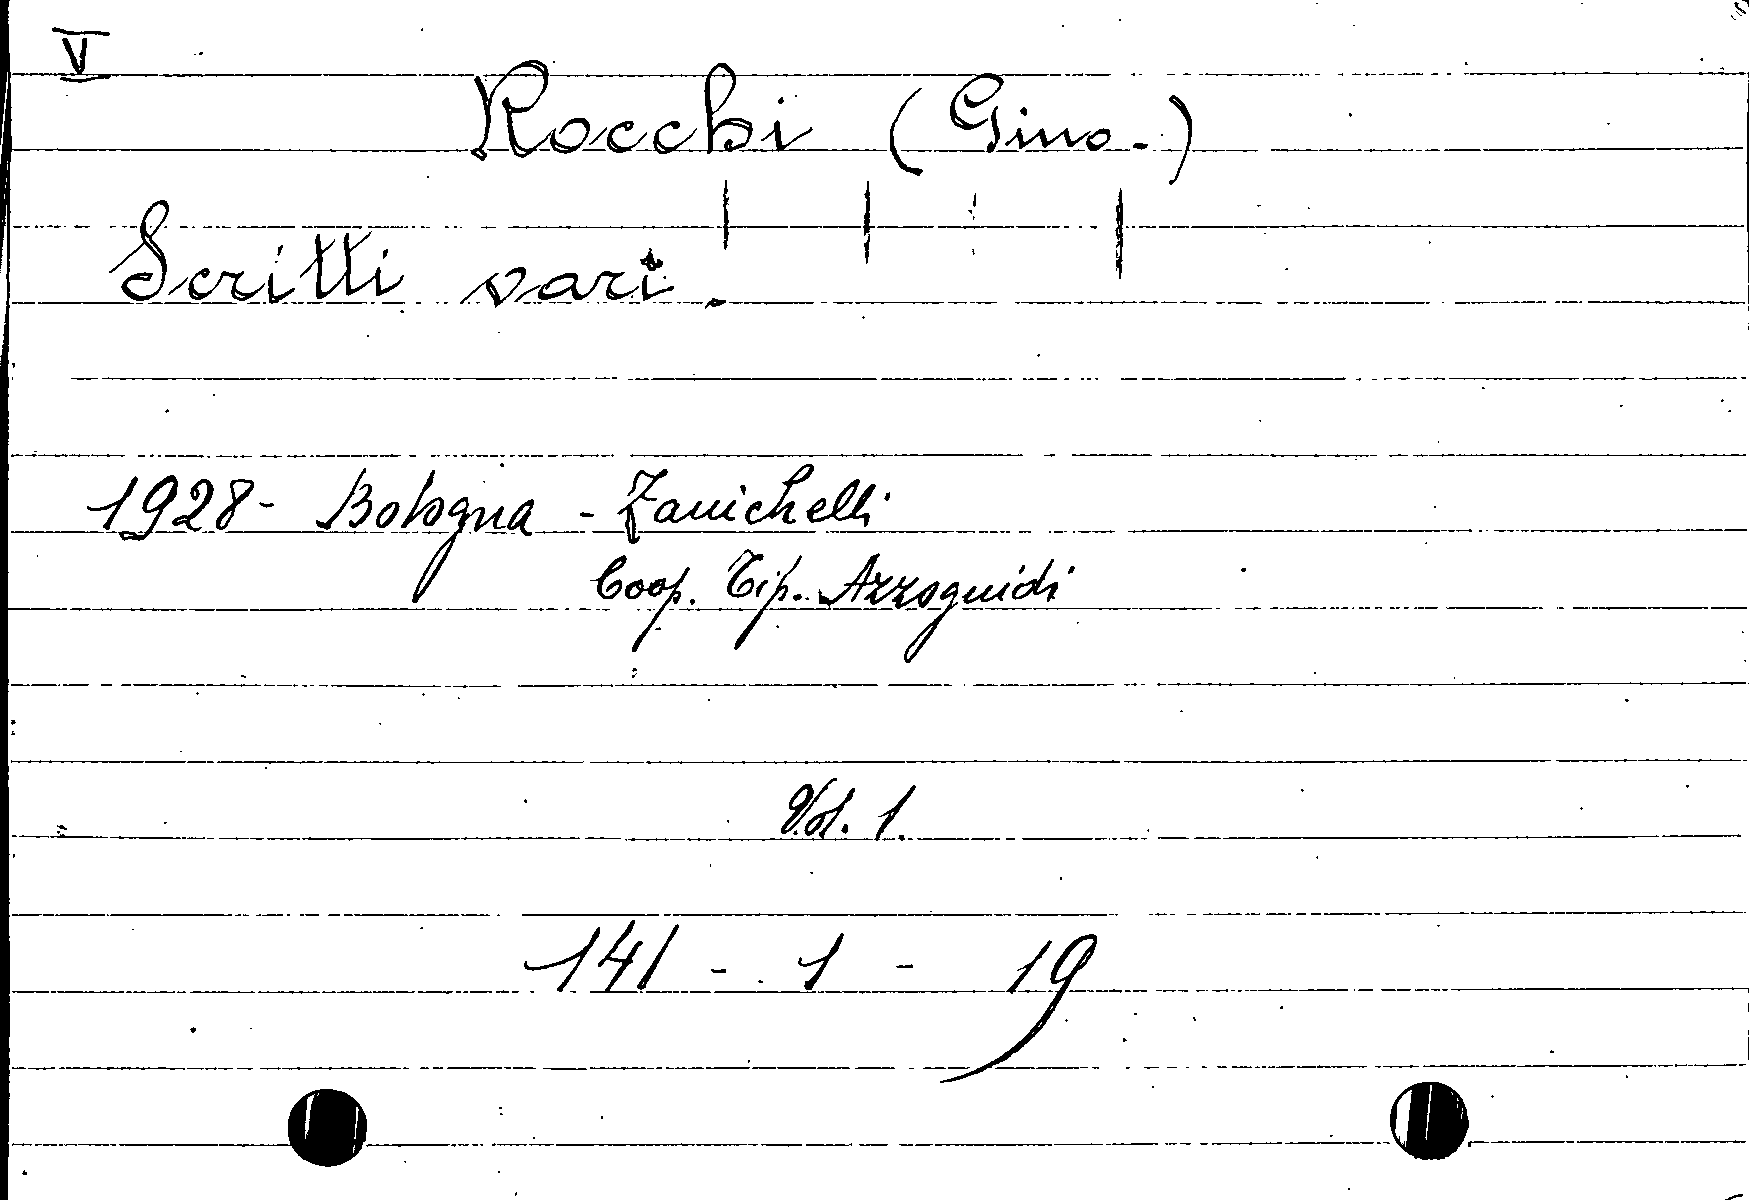 V
Rocchi (Gino.)
Scritti vari.
1928 - Bologna - Zanichelli
Coop. Tip. Azzoguidi
Vol. 1.
141 - 1 - 19